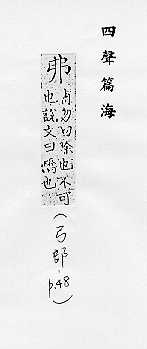 四聲篇海
弗
勿切除也不可
也說文曰也
(弓部, p.48)